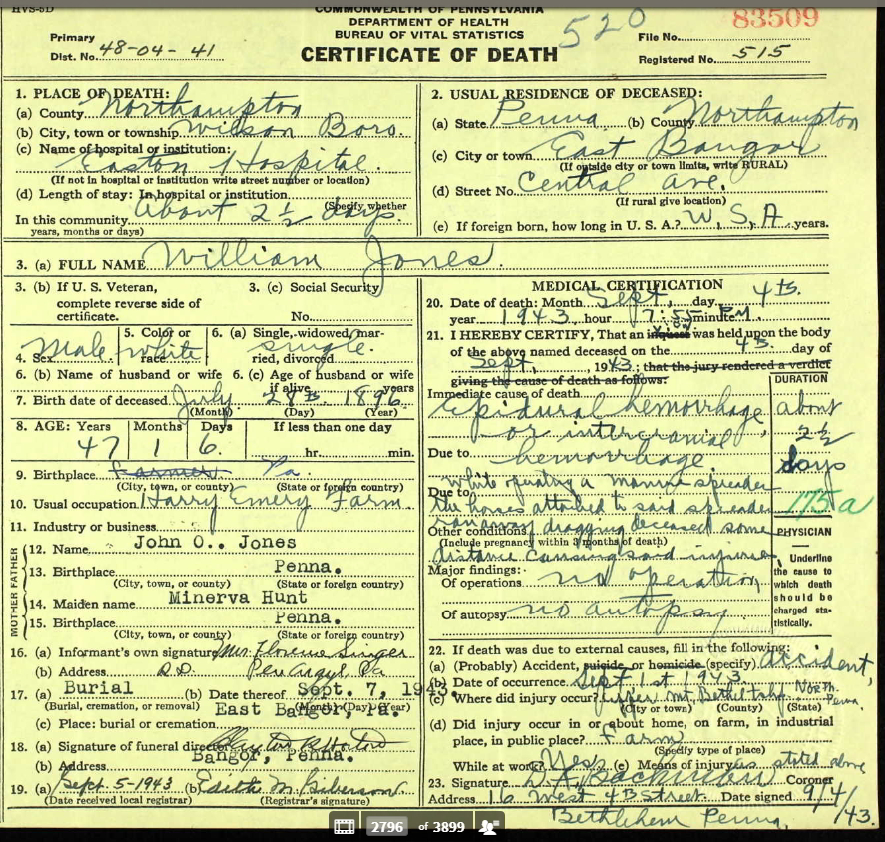 HVS-5D
COMMONWEALTH OF PENNSYLVANIA
DEPARTMENT OF HEALTH
BUREAU OF VITAL STATISTICS
CERTIFICATE OF DEATH
520
83509
Primary
Dist. No. 48-04-41
File No.
Registered No. 515
1. PLACE OF DEATH:
(a) County Northampton
(b) City, town or township Wilson Boro.
(c) Name of hospital or institution:
Easton Hospital
(If not in hospital or institution write street number or location)
(d) Length of stay: In hospital or institution
(Specify whether
In this community About 2 ½ days.
years, months or days)
2. USUAL RESIDENCE OF DECEASED:
(a) State Penna. (b) County Northampton
(c) City or town East Bangor
(If outside city or town limits, write RURAL)
(d) Street No. Central Ave.
(If rural give location)
(e) If foreign born, how long in U. S. A.? W, S, A years.
3. (a) FULL NAME William Jones.
3. (b) If U. S. Veteran, complete reverse side of certificate.
3. (c) Social Security No.
4. Sex Male
5. Color or race white
6. (a) Single, widowed, married, divorced single.
6. (b) Name of husband or wife
6. (c) Age of husband or wife if alive years
7. Birth date of deceased July 28th. 1896
(Month) (Day) (Year)
8. AGE: Years Months Days If less than one day
47 1 6. hr. min.
9. Birthplace Farmer Pa.
(City, town, or county) (State or foreign country)
10. Usual occupation Harry Emery Farm.
11. Industry or business
FATHER
12. Name John O.. Jones
13. Birthplace Penna.
(City, town, or county) (State or foreign country)
MOTHER
14. Maiden name Minerva Hunt
15. Birthplace Penna.
(City, town, or county) (State or foreign country)
16. (a) Informant's own signature Mrs Florence Singer
(b) Address R.D. Pen Argyl Pa
17. (a) Burial (b) Date thereof Sept. 7, 1943.
(Burial, cremation, or removal) (Month) (Day) (Year)
(c) Place: burial or cremation East Bangor, Pa.
18. (a) Signature of funeral director
(b) Address Bangor, Penna.
19. (a) Sept. 5-1943 (b) Edith M. Giberson
(Date received local registrar) (Registrar's signature)
MEDICAL CERTIFICATION
20. Date of death: Month Sept. day 4th.
year 1943 hour 7:55 minute PM
21. I HEREBY CERTIFY, That an inquest was held upon the body
of the above named deceased on the 4th. day of
Sept, 1943; that the jury rendered a verdict
giving the cause of death as follows:
DURATION
Immediate cause of death
Epidural hemorrhage about
or intercranial 2½
Due to hemorrhage. days
while operating a manure spreader
Due to
the horses attached to said spreader 175a
ran away dragging deceased some
Other conditions
(Include pregnancy within 3 months of death)
distance causing said injuries
PHYSICIAN
Underline the cause to which death should be charged statistically.
Major findings:
Of operations no operation
Of autopsy no autopsy
22. If death was due to external causes, fill in the following:
(a) (Probably) Accident, suicide or homicide (specify) accident,
(b) Date of occurrence Sept 1st 1943.
(c) Where did injury occur? Upper Mt. Bethel tshp North. Penn.
(City or town) (County) (State)
(d) Did injury occur in or about home, on farm, in industrial
place, in public place? Farm
(Specify type of place)
While at work? Yes (e) Means of injury as stated above
23. Signature Coroner
Address 16 West 4th Street. Date signed 9/4/43.
Bethlehem Penna.
2796 of 3899